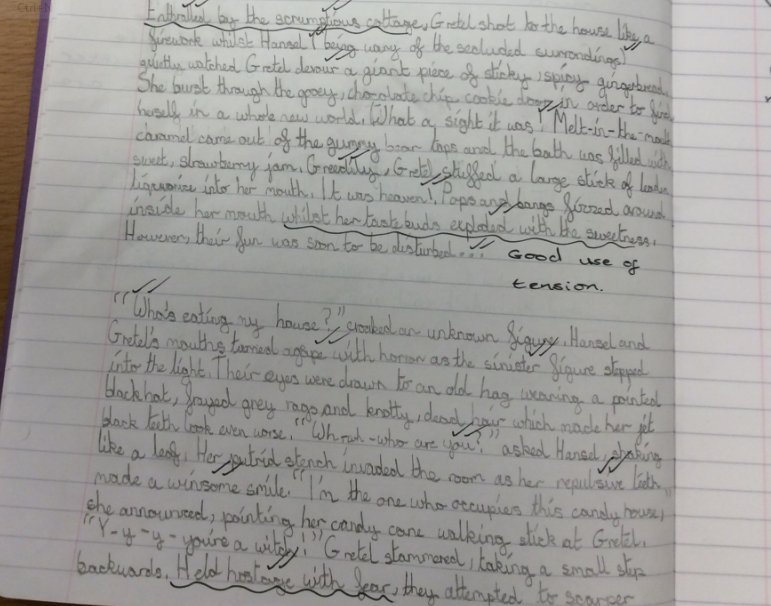 Enthralled by the scrumptious cottage, Gretel shot to the house like a
firework whilst Hansel, being wary of the secluded surrondings,
quietly watched Gretel devour a giant piece of sticky, spicy gingerbread.
She burst through the gooey, chocolate chip cookie doors in order to find
herself in a whole new world. What a sight it was! Melt-in-the-mouth
caramel came out of the gummy bear taps and the bath was filled with
sweet, strawberry jam. Greedily, Gretel stuffed a large stick of
liquorice into her mouth. It was heaven! Pops and bangs fizzed around
inside her mouth whilst her tastebuds exploded with the sweetness.
However, their fun was soon to be disturbed...
Good use of
tension.
"Who's eating my house?" croaked an unknown figure. Hansel and
Gretel's mouths turned agape with horror as the sinister figure stepped
into the light. Their eyes were drawn to an old hag wearing a pointed
black hat, frayed grey rags and knotty, dead hair which made her jet
black teeth look even worse. "Wh-wh-who are you?" asked Hansel, shaking
like a leaf. Her putrid stench invaded the room as her repulsive teeth
made a winsome smile. "I'm the one who occupies this candy house,"
she announced, pointing her candy cane walking stick at Gretel.
"Y-y-y-you're a witch!" Gretel stammered, taking a small step
backwards. Held hostage with fear, they attempted to scarper